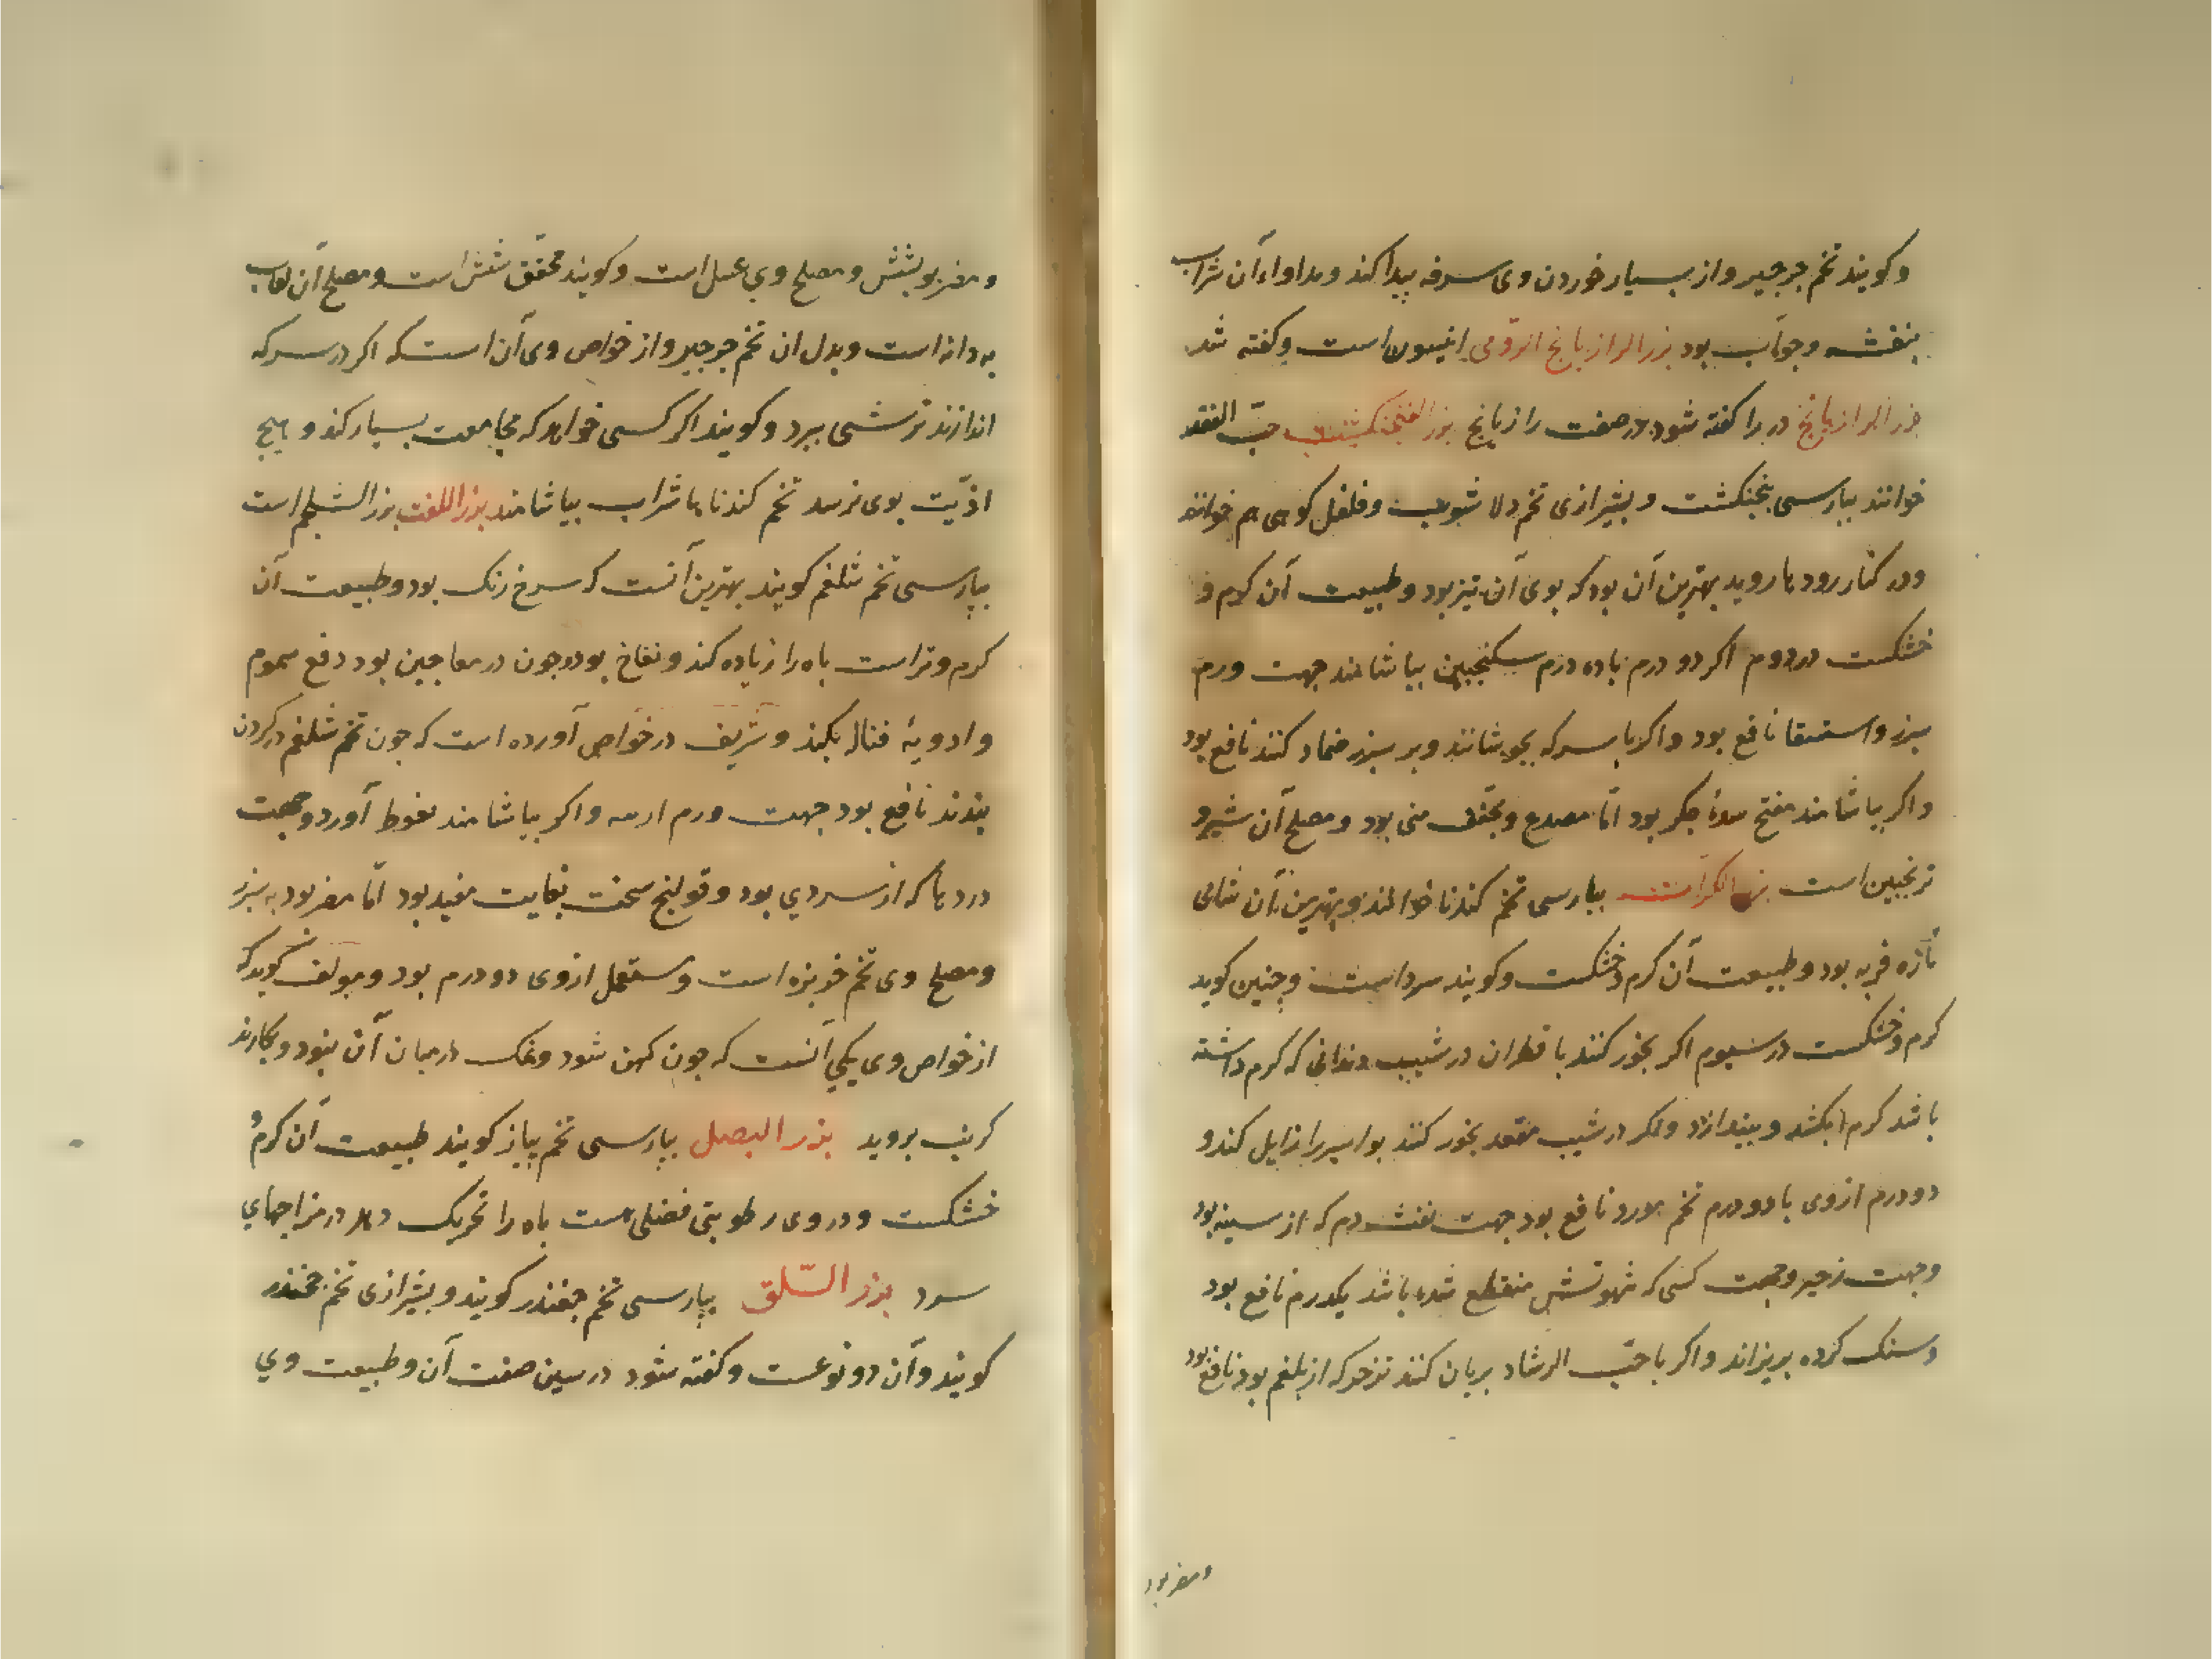 وکویند تخم جرجیر واز بسیار خوردن وی سرفه پیدا کند ومداواء آن شراب
بنفشه وجوآب بود بزر الرازیانج الرومی انیسون است وکفته شد
بزر الرازیانج در را کفته شود در صفت رازیانج بزر الفنجنکشت حبّ الفقد
خوانند بپارسی پنجنکشت وبشیرازی تخم دلا شوب وفلفل کوهی هم خوانند
ودر کنار رودها روید بهترین آن بود که بوی آن تیز بود وطبیعت آن کرم و
خشکست در دوم اکر دو درم باده درم سکنجبین بیاشامند جهت ورم
سپرز واستسقا نافع بود واکر با سرکه بجوشانند وبر سپرز ضماد کنند نافع بود
واکر بیاشامند مفتح سدۀ جکر بود امّا مصدع ومجّفف منی بود ومصلح آن شیر و
ترنجبین است بزر الکراث بپارسی تخم کندنا خوانند وبهترین آن شامی
تازه فربه بود وطبیعت آن کرم وخشکست وکویند سرد است وچنین کوید
کرم وخشکست در سیوم اکر بخور کنند با قطران در شیب دندانی که کرم داشته
باشد کرم را بکشد وبیندازد واکر در شیب مقعد بخور کنند بواسیر را زایل کند و
دو درم ازوی با دو درم تخم مورد نافع بود جهت نفث دم که از سینه بود
وجهت زحیر وجهت کسی که شهوتش منقطع شده باشد یکدرم نافع بود
وسنک کرده بریزاند واکر با حبّ الرشاد بریان کنند تزحر که از بلغم بود نافع بود
ومضر بود
ومضر بود بشش ومصلح وی عسل است وکویند محقّق شش است ومصلح آن لعاب
به دانه است وبدل ان تخم جرجیر واز خواص وی آن است که اکر در سرکه
اندازند ترشی ببرد وکویند اکر کسی خواهد که مجامعت بسیار کند و هیچ
اذیّت بوی نرسد تخم کندنا با شراب بیاشامند بزر اللفت بزر الشلجم است
بپارسی تخم شلغم کویند بهترین آنست که سرخ رنک بود وطبیعت آن
کرم وتر است باه را زیاده کند ونفاخ بود وچون در معاجین بود دفع سموم
وادویۀ قتاله بکند وشریف در خواص آورده است که چون تخم شلغم در کردن
بندند نافع بود جهت ورم ارىىه واکر بیاشامند نعوط آورد وجهت
دردها که از سردی بود وقولنج سخت بغایت مفید بود امّا مضر بود به سپرز
ومصلح وی تخم خربزه است ومستعمل ازوی دو درم بود ومولف کوید که
از خواص وی یکی آنست که چون کهن شود ونمک در میان آن بنود وبکارند
کرنب بروید بزر البصل بپارسی تخم پیاز کویند طبیعت آن کرم و
خشکست ودر وی رطوبتی فضلی هست باه را تحریک دهد در مزاجهای
سرد بزر السّلق بپارسی تخم چغندر کویند وبشیرازی تخم چغندر
کویند وآن دو نوعست وکفته شود در سین صفت آن وطبیعت وی